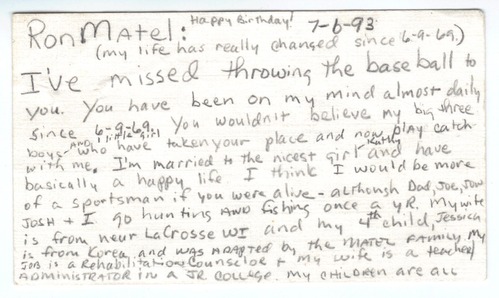 Happy Birthday! 7-6-93
Ron Matel:
(my life has really changed since 6-9-69.)
I've missed throwing the baseball to
you. You have been on my mind almost daily
since 6-9-69. You wouldn't believe my big three
boys AND 1 little girl who have taken your place and now play catch
with me. I'm married to the nicest girl Kathy and have
basically a happy life I think I would be more
of a sportsman if you were alive - although Dad, Joe, Jon
Josh + I go hunting AND fishing once a yR. My wife
is from near LaCrosse WI and my 4th child, Jessica
is from Korea and was ADApted by the MATEL FAMILY, My
JOB is a Rehabilitation Counselor + my wife is a teacher/
ADMINISTRATOR in a JR. COllege. My CHILDREN are ALL